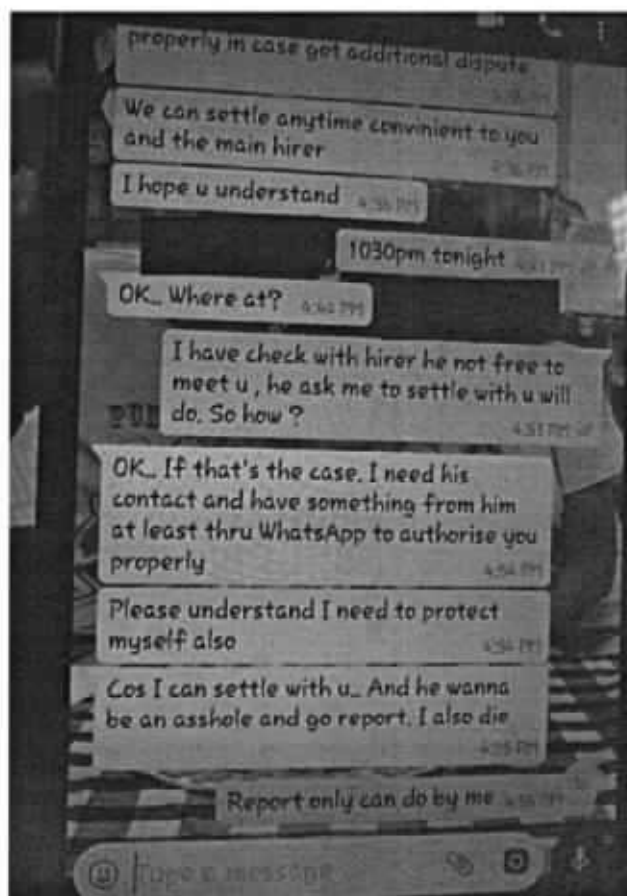 properly in case got additional dispute
We can settle anytime convinient to you
and the main hirer
4:36 PM
I hope u understand 4:36 PM
1030pm tonight
OK.. Where at?
I have check with hirer he not free to
meet u , he ask me to settle with u will
do. So how ?
4:51 PM
OK.. If that's the case. I need his
contact and have something from him
at least thru WhatsApp to authorise you
properly
4:54 PM
Please understand I need to protect
myself also
4:54 PM
Cos I can settle with u.. And he wanna
be an asshole and go report. I also die
4:55 PM
Report only can do by me
Type a message